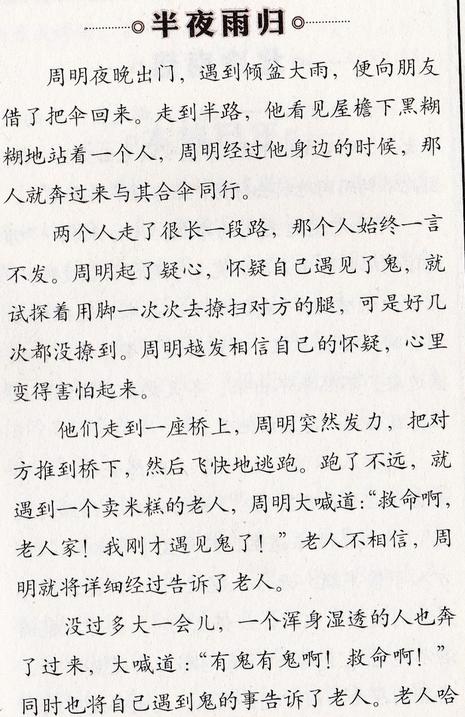 半夜雨归
周明夜晚出门，遇到倾盆大雨，便向朋友
借了把伞回来。走到半路，他看见屋檐下黑糊
糊地站着一个人，周明经过他身边的时候，那
人就奔过来与其合伞同行。
两个人走了很长一段路，那个人始终一言
不发。周明起了疑心，怀疑自己遇见了鬼，就
试探着用脚一次次去撩扫对方的腿，可是好几
次都没撩到。周明越发相信自己的怀疑，心里
变得害怕起来。
他们走到一座桥上，周明突然发力，把对
方推到桥下，然后飞快地逃跑。跑了不远，就
遇到一个卖米糕的老人，周明大喊道：“救命啊，
老人家！我刚才遇见鬼了！”老人不相信，周
明就将详细经过告诉了老人。
没过多大一会儿，一个浑身湿透的人也奔
了过来，大喊道：“有鬼有鬼啊！救命啊！”
同时也将自己遇到鬼的事告诉了老人。老人哈